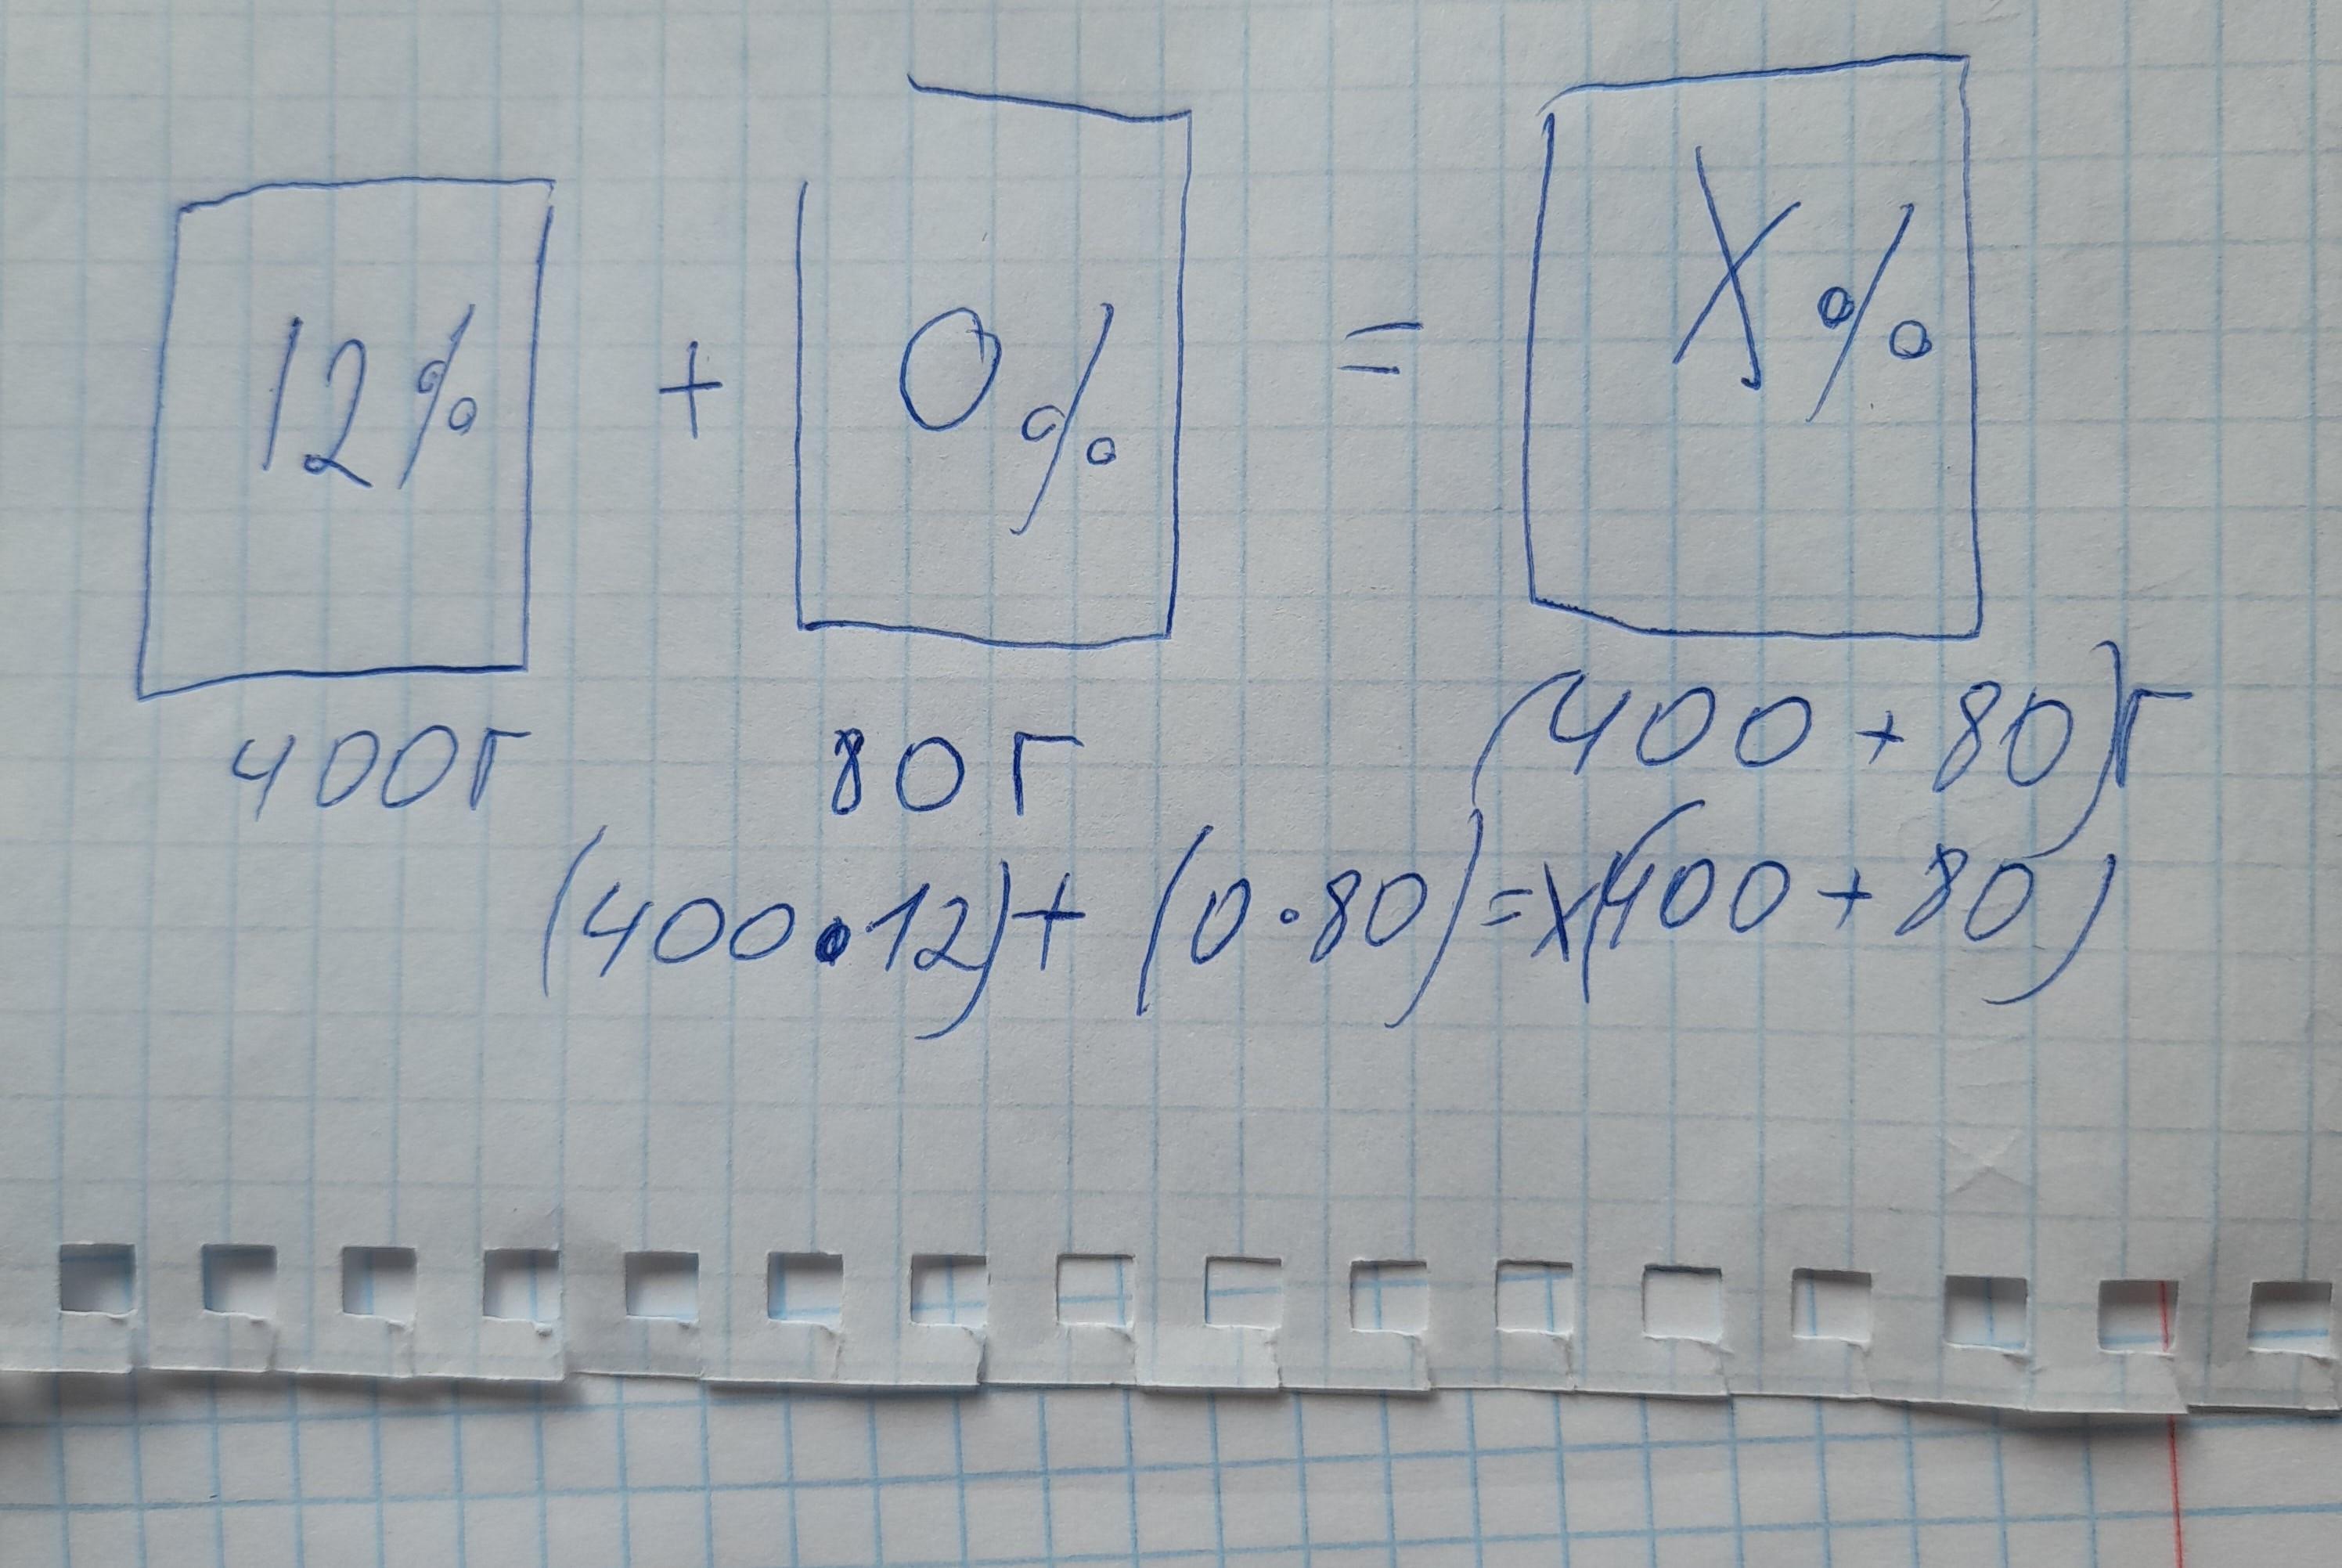 12% + 0% = X%
400г 80г (400 + 80)г
(400 · 12) + (0 · 80) = X(400 + 80)